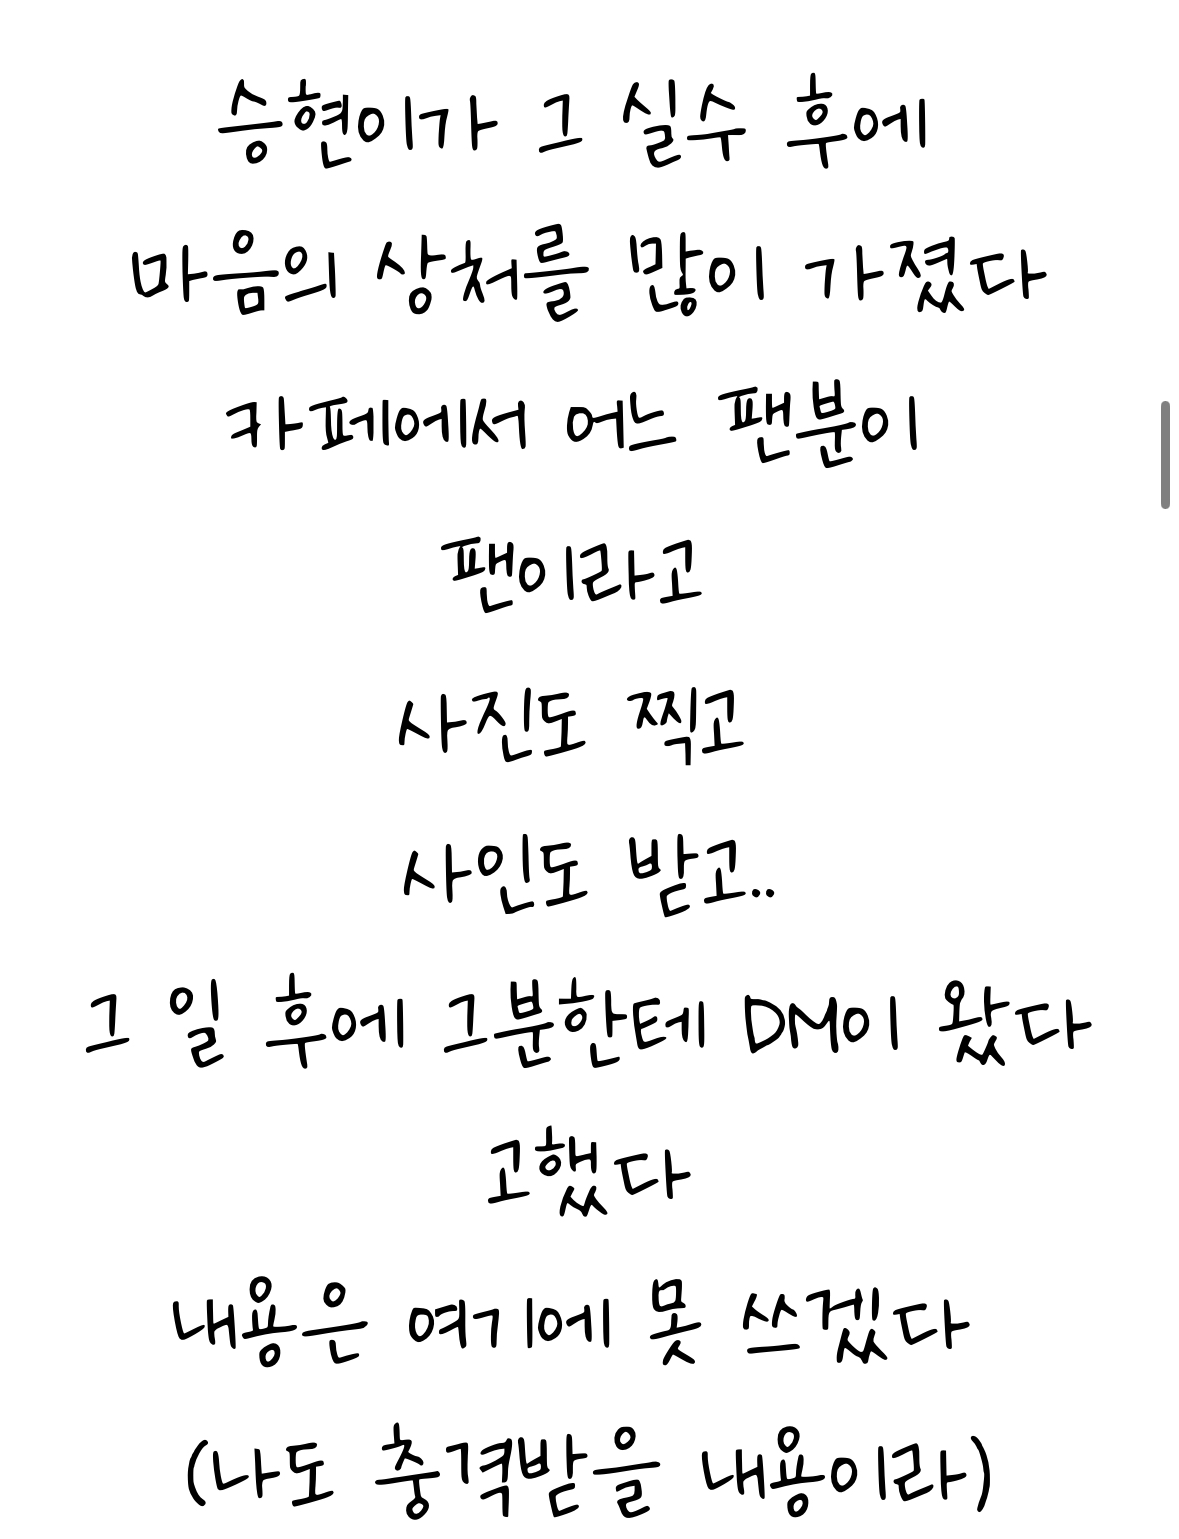 승현이가 그 실수 후에
마음의 상처를 많이 가졌다
카페에서 어느 팬분이
팬이라고
사진도 찍고
사인도 받고..
그 일 후에 그분한테 DM이 왔다
고했다
내용은 여기에 못 쓰겠다
(나도 충격받을 내용이라)